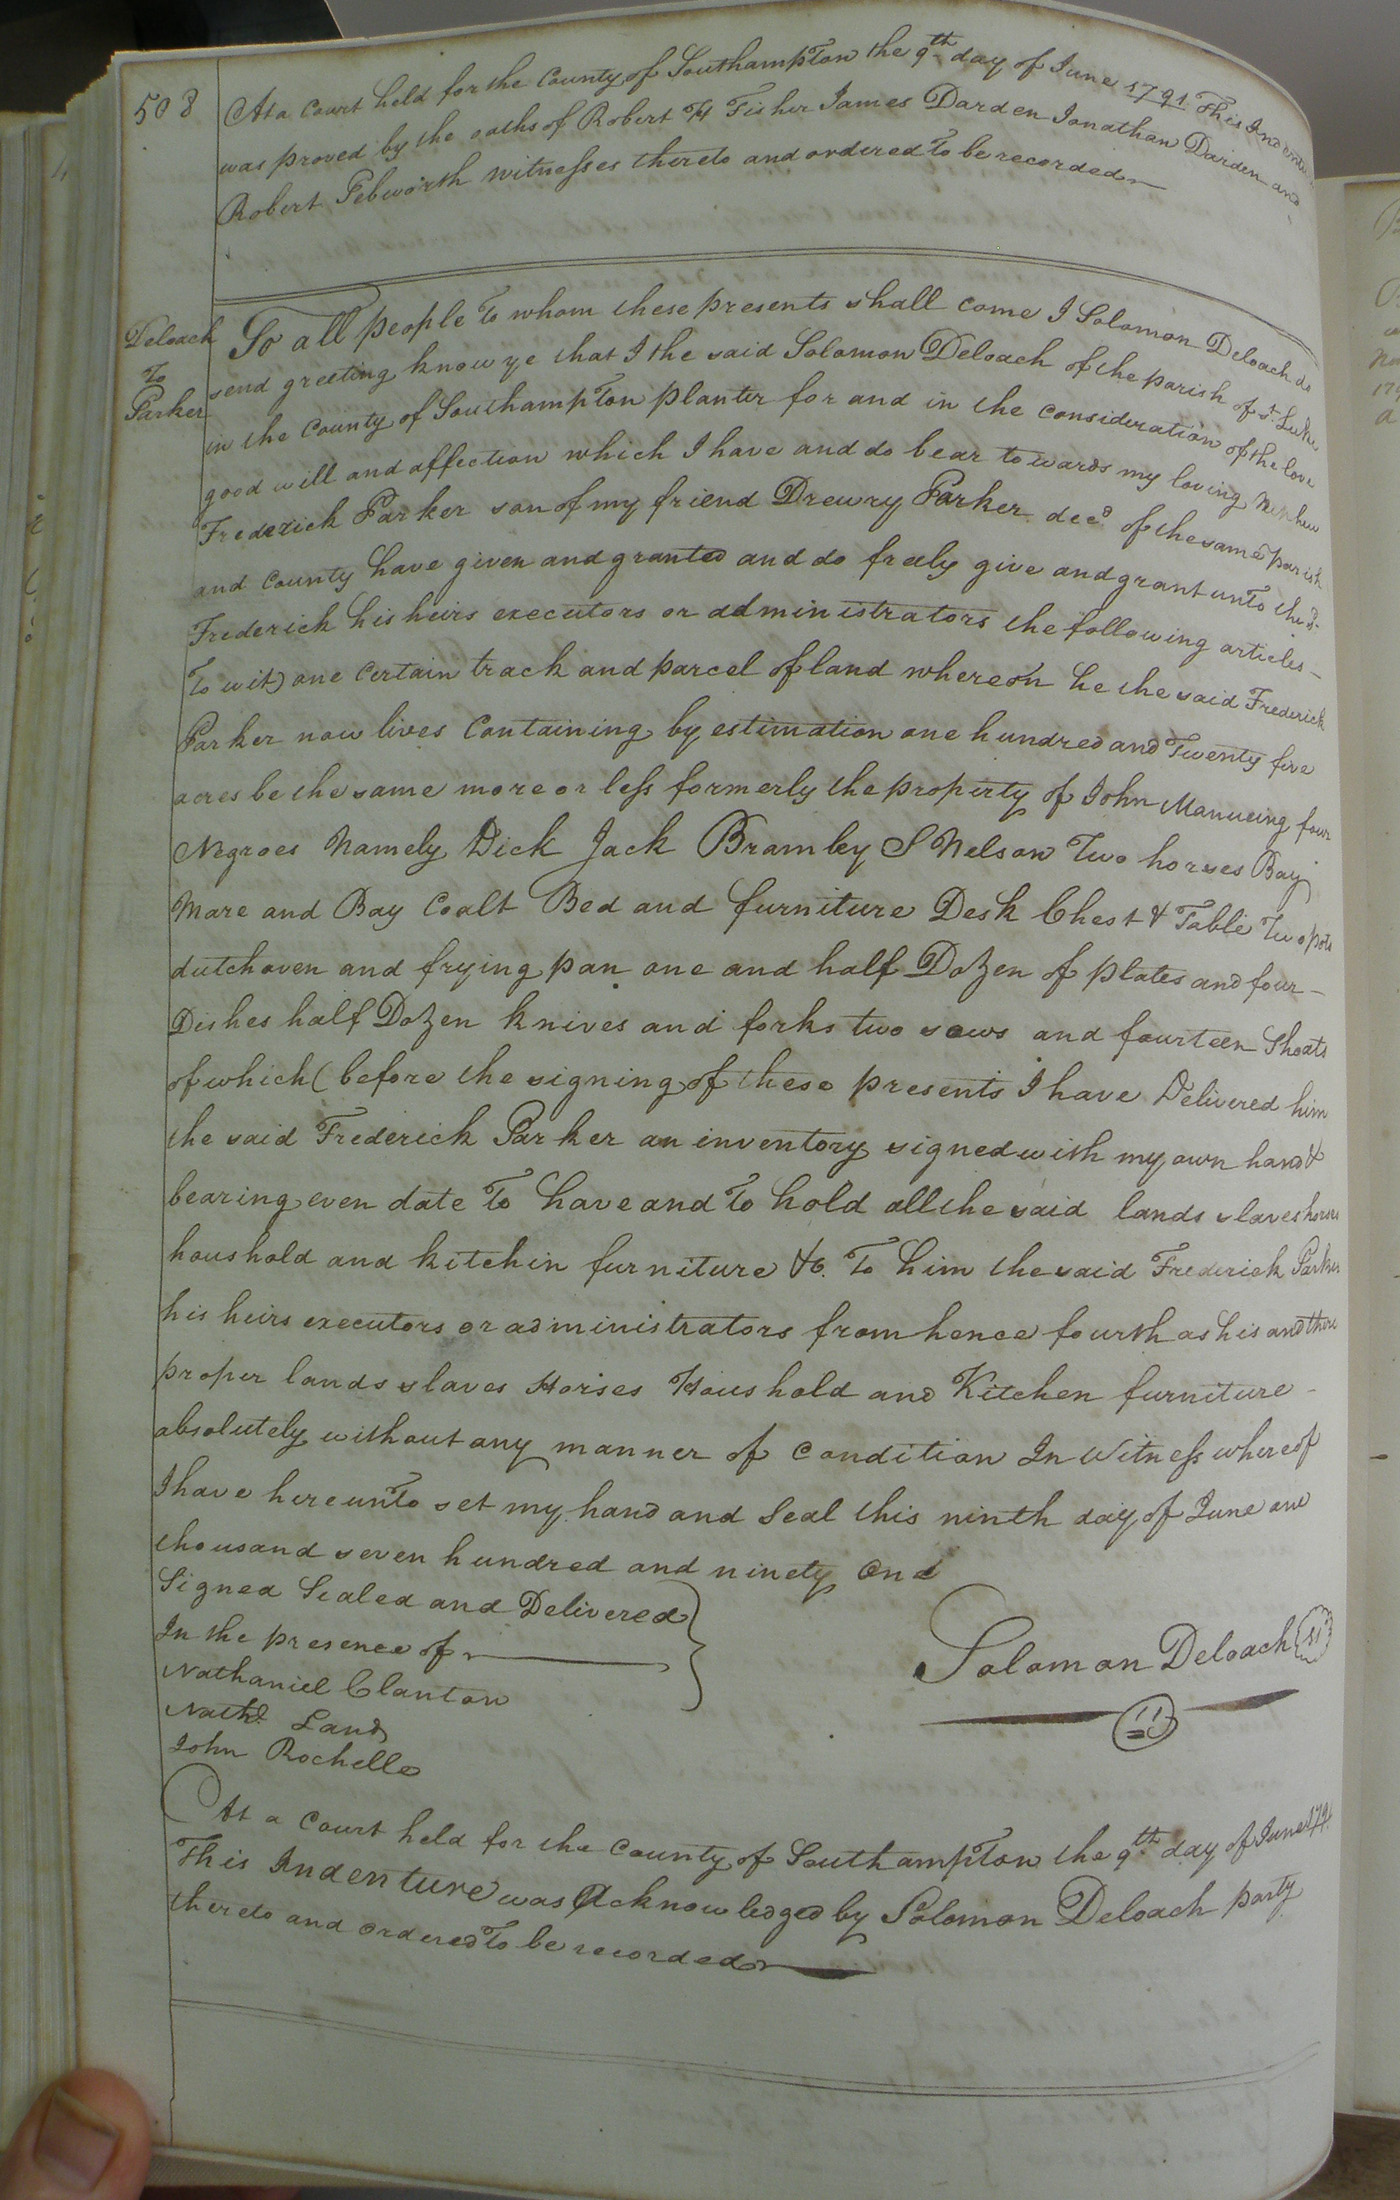 508
At a Court held for the County of Southampton the 9th day of June 1791 This Indenture
was proved by the oaths of Robert H Fisher James Darden Jonathan Darden and
Robert Tebworth witnesses thereto and ordered to be recorded
Deloach
To
Parker
To all people to whom these presents shall come I Solomon Deloach do
send greeting know ye that I the said Solomon Deloach of the parish of St. Luke
in the County of Southampton planter for and in the consideration of the love
good will and affection which I have and do bear towards my loving Nephew
Frederick Parker son of my friend Drewry Parker decd of the same parish
and County have given and granted and do freely give and grant unto the sd.
Frederick his heirs executors or administrators the following articles
To wit) one certain track and parcel of land whereon he the said Frederick
Parker now lives Containing by estimation one hundred and Twenty five
acres be the same more or less formerly the property of John four
Negroes Namely Dick Jack Bramley & Nelson Two horses Bay
Mare and Bay Coalt Bed and furniture Desk Chest & Table Two pots
dutchoven and frying pan one and half Dozen of plates and four
Dishes half Dozen knives and forks two sows and fourteen Shoats
of which (before the signing of these presents I have Delivered him
the said Frederick Parker an inventory signed with my own hand &
bearing even date To have and To hold all the said lands slaves horses
houshold and kitchin furniture &c. To him the said Frederick Parker
his heirs executors or administrators from hence fourth as his and there
proper lands slaves Horses Houshold and Kitchen furniture
absolutely without any manner of Condition In Witness whereof
I have hereunto set my hand and Seal this ninth day of June one
thousand seven hundred and ninety one
Signed Sealed and Delivered
In the presence of
Nathaniel Clanton
Nathl. Land
John Rochelle
Solomon Deloach
At a Court held for the County of Southampton the 9th day of June 1791
This Indenture was Acknowledged by Solomon Deloach party
thereto and ordered To be recorded